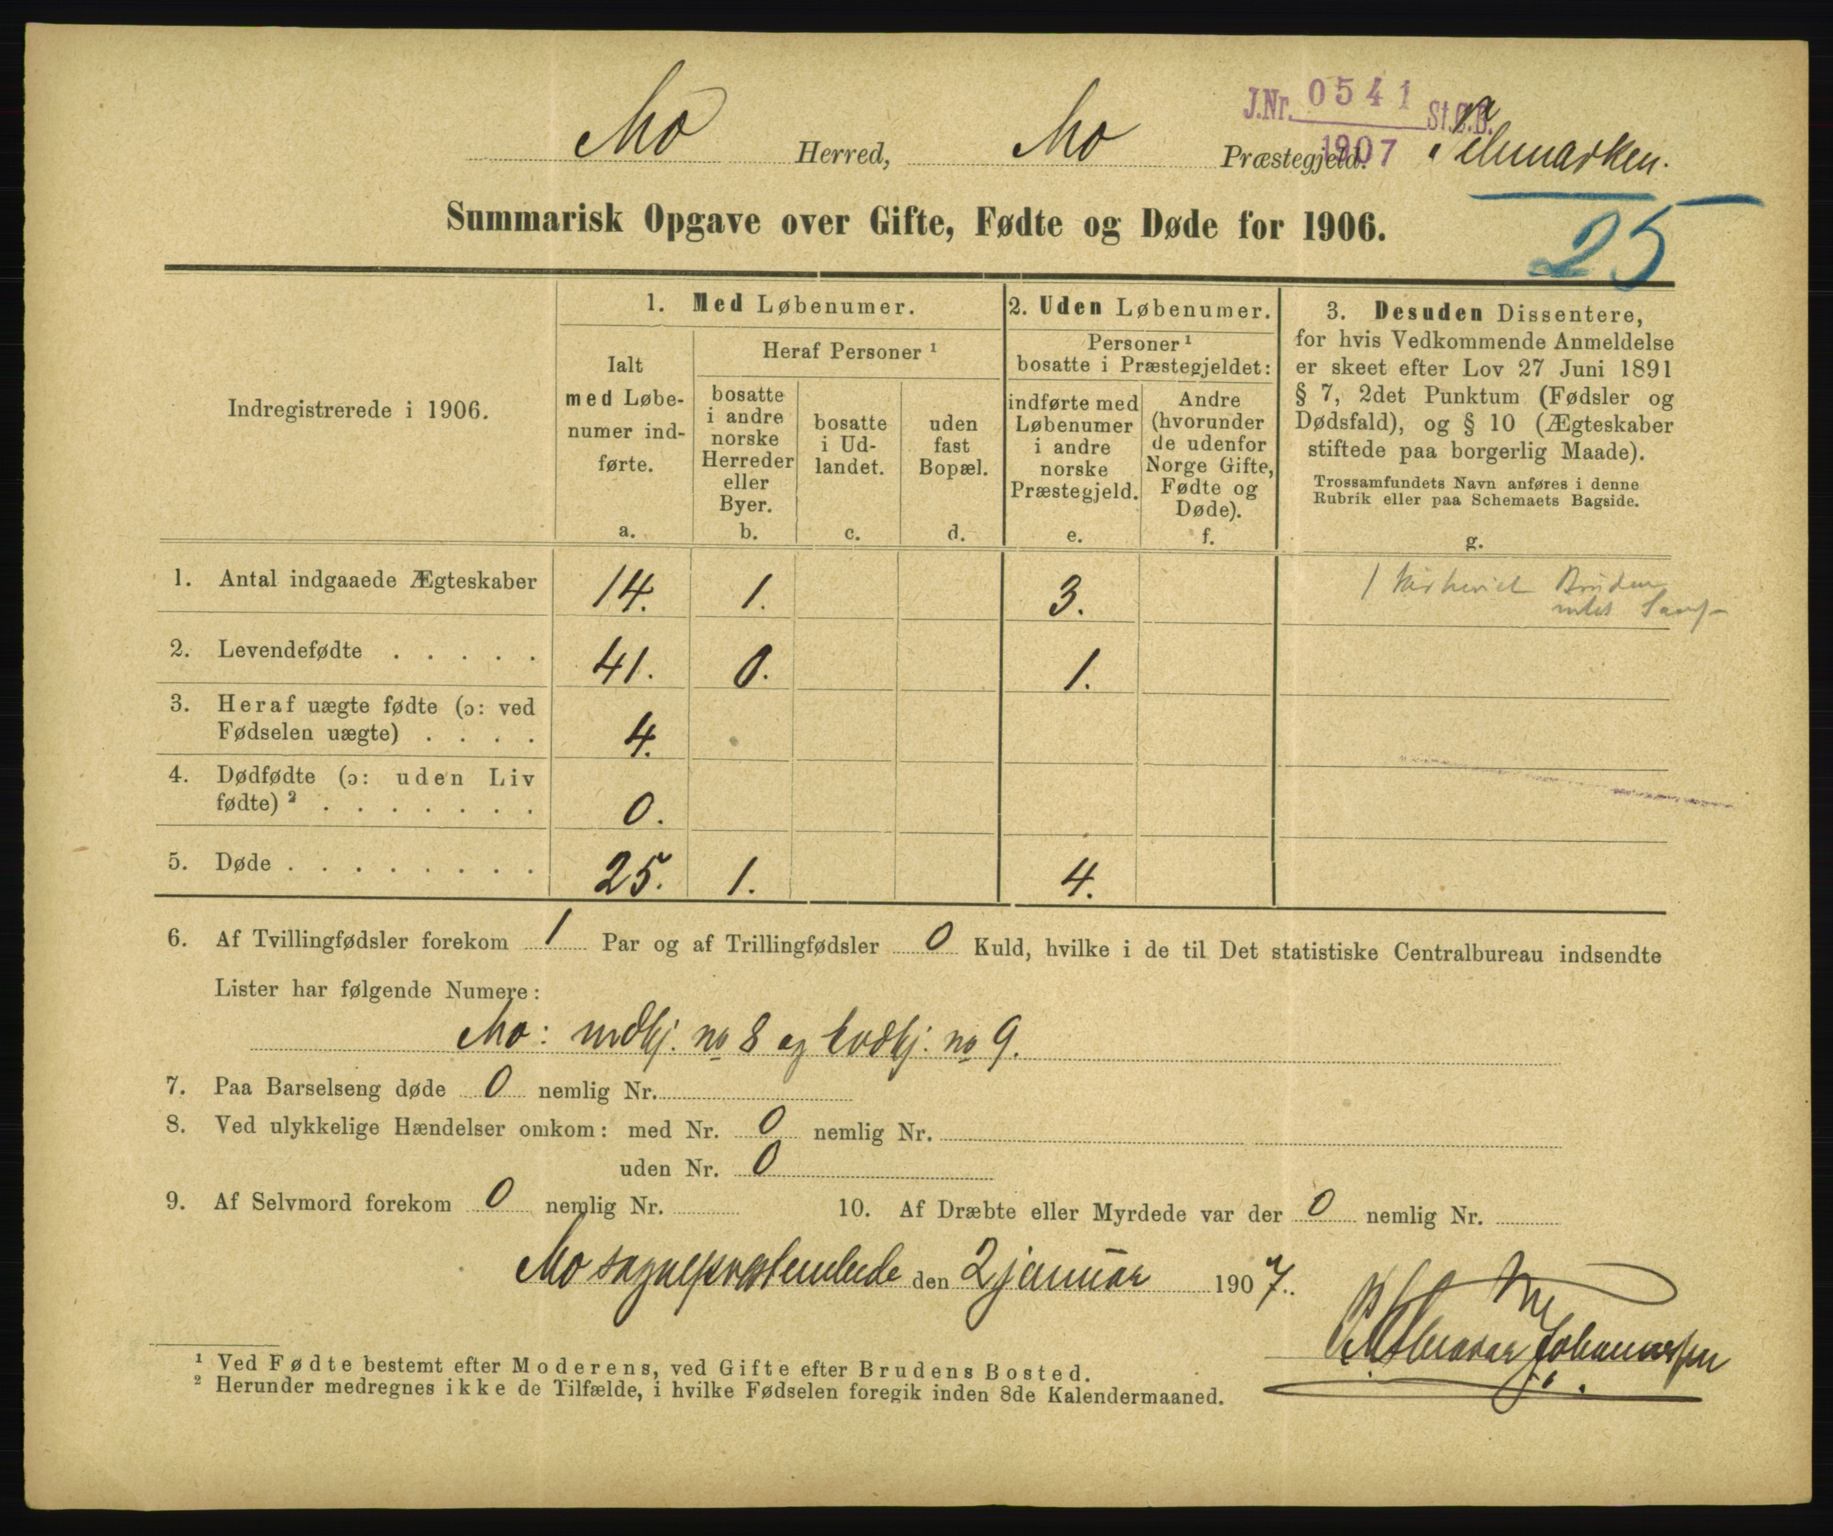 J.Nr. 0541 St.C.B.
1907
Mo Herred, Mo Præstegjeld. Telemarken.
25
Summarisk Opgave over Gifte, Fødte og Døde for 1906.
Indregistrerede i 1906.
1. Med Løbenumer.
Ialt
med Løbe-
numer ind-
førte.
a.
Heraf Personer ¹
bosatte
i andre
norske
Herreder
eller
Byer.
b.
bosatte
i Ud-
landet.
c.
uden
fast
Bopæl.
d.
2. Uden Løbenumer.
Personer ¹
bosatte i Præstegjeldet:
indførte med
Løbenumer
i andre
norske
Præstegjeld.
e.
Andre
(hvorunder
de udenfor
Norge Gifte,
Fødte og
Døde).
f.
3. Desuden Dissentere,
for hvis Vedkommende Anmeldelse
er skeet efter Lov 27 Juni 1891
§ 7, 2det Punktum (Fødsler og
Dødsfald), og § 10 (Ægteskaber
stiftede paa borgerlig Maade).
Trossamfundets Navn anføres i denne
Rubrik eller paa Schemaets Bagside.
g.
1. Antal indgaaede Ægteskaber 14. 1. 3. 1 Bruden
2. Levendefødte . . . . . 41. 0. 1.
3. Heraf uægte fødte (ɔ: ved
Fødselen uægte) . . . . 4.
4. Dødfødte (ɔ: uden Liv
fødte) ² . . . . . . . 0.
5. Døde . . . . . . . . 25. 1. 4.
6. Af Tvillingfødsler forekom 1 Par og af Trillingfødsler 0 Kuld, hvilke i de til Det statistiske Centralbureau indsendte
Lister har følgende Numere:
Mo: mdkj. no 8 og kvdkj. no 9.
7. Paa Barselseng døde 0 nemlig Nr.
8. Ved ulykkelige Hændelser omkom: med Nr. 0 nemlig Nr.
uden Nr. 0
9. Af Selvmord forekom 0 nemlig Nr. 10. Af Dræbte eller Myrdede var der 0 nemlig Nr.
Mo sogneprestembede den 2 januar 1907.
Johannessen
¹ Ved Fødte bestemt efter Moderens, ved Gifte efter Brudens Bosted.
² Herunder medregnes ikke de Tilfælde, i hvilke Fødselen foregik inden 8de Kalendermaaned.